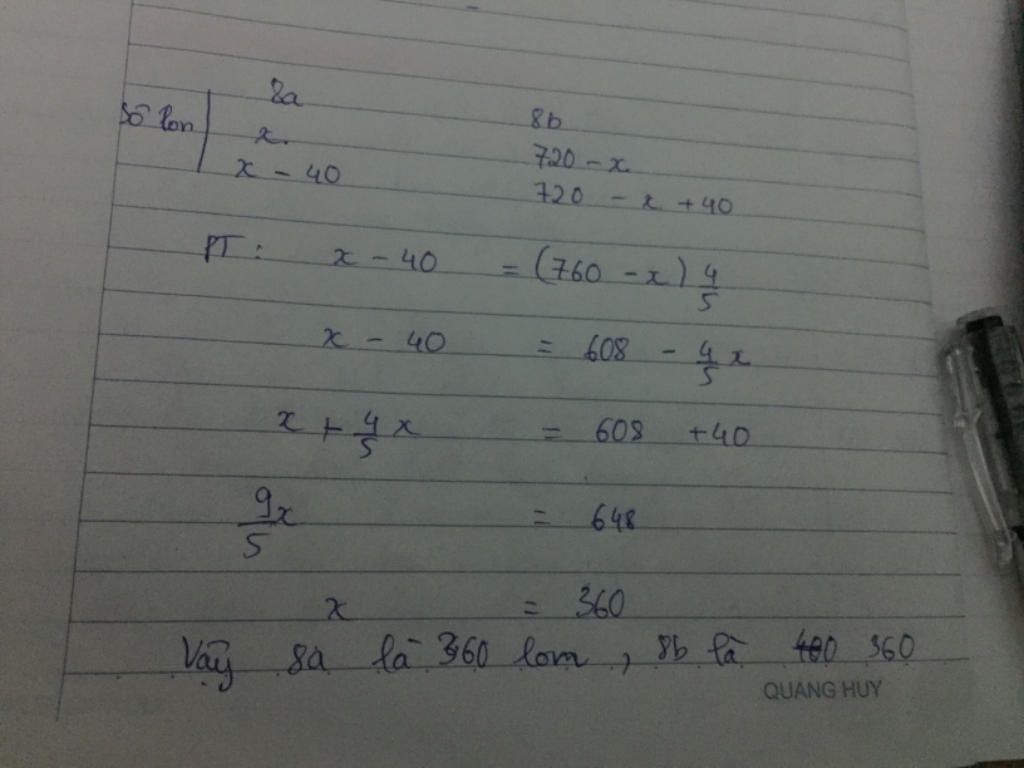 8a 8b
Số lon x. 720 - x
x - 40 720 - x + 40
PT : x - 40 = (760 - x) 4/5
x - 40 = 608 - 4/5 x
x + 4/5 x = 608 + 40
9/5 x = 648
x = 360
Vậy 8a là 360 lon, 8b là 360
QUANG HUY